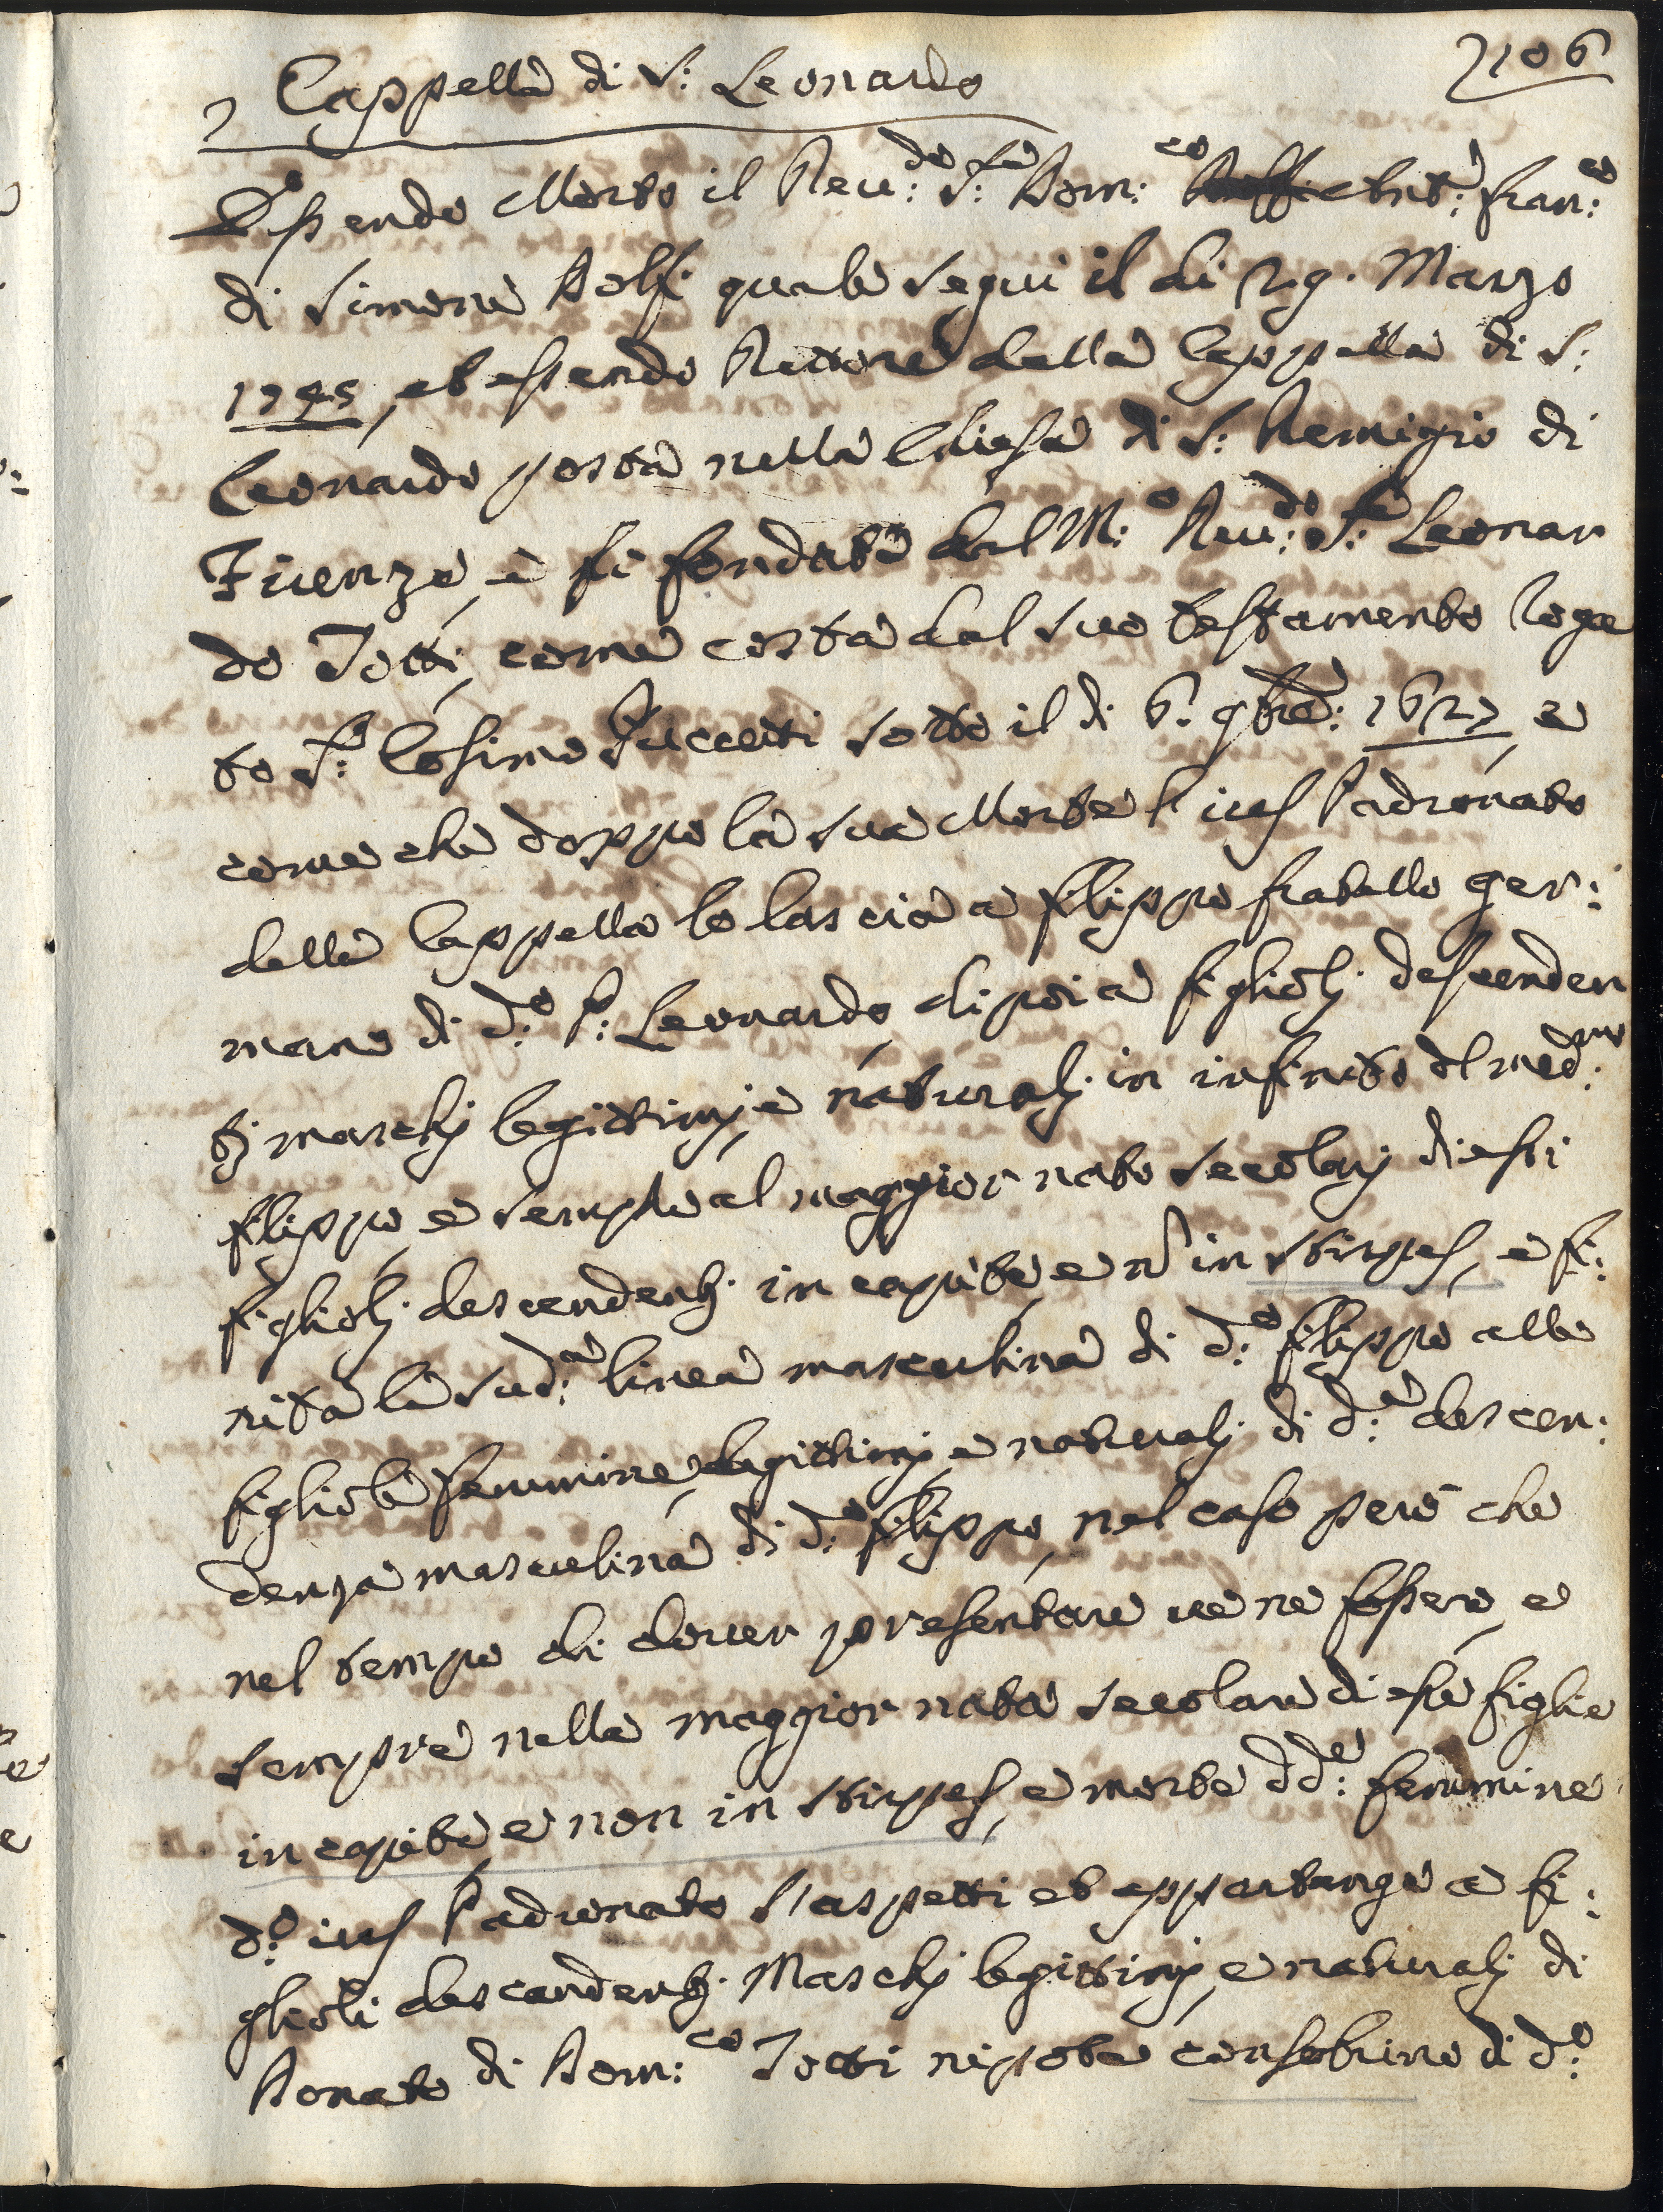 106
Cappella di S: Leonardo
Essendo Morto il Reu:do S:re Dom:co Ant:o Fran:co
di Simone Dolfi quale segui il di 29. Marzo
1745, et essendo Rettore della Cappella di S:
Leonardo posta nella Chiesa di S: Remigio di
Firenze, e fù fondata dal M:o Reu:do S:re Leonar
do Totti, come costa dal suo testamento roga
to S:r Cosimo sotto il di 6. 9bre: 1627, e
come che doppo la sua Morte l'ius Padronato
della Cappella lo lascia a Filippo fratello ger:
mano di d:o P: Leonardo, di poi a figliolj descenden
tj maschj legittimj e naturalj in infinito del med:mo
Filippo, e sempre al maggior nato secolarj di essi
figliolj descendentj in capite, e nõ in stirpes, e fi:
nita la sud:a linea masculina di d:o Filippo alle
figliole femmine, legittimj e naturalj di d:a descen:
denza masculina di d:o Filippo, nel caso però che
nel tempo di dover presentare ve ne fossero, e
sempre nella maggior nata secolare di esse figlie
in capite e non in stirpes, e morte dd:e femmine
d:o ius Padronato s'aspetti et appartenga a fi:
glioli descendentj Maschj legittimj, e naturalj di
Donato di Dom:co Totti nipote consobrino di d:o